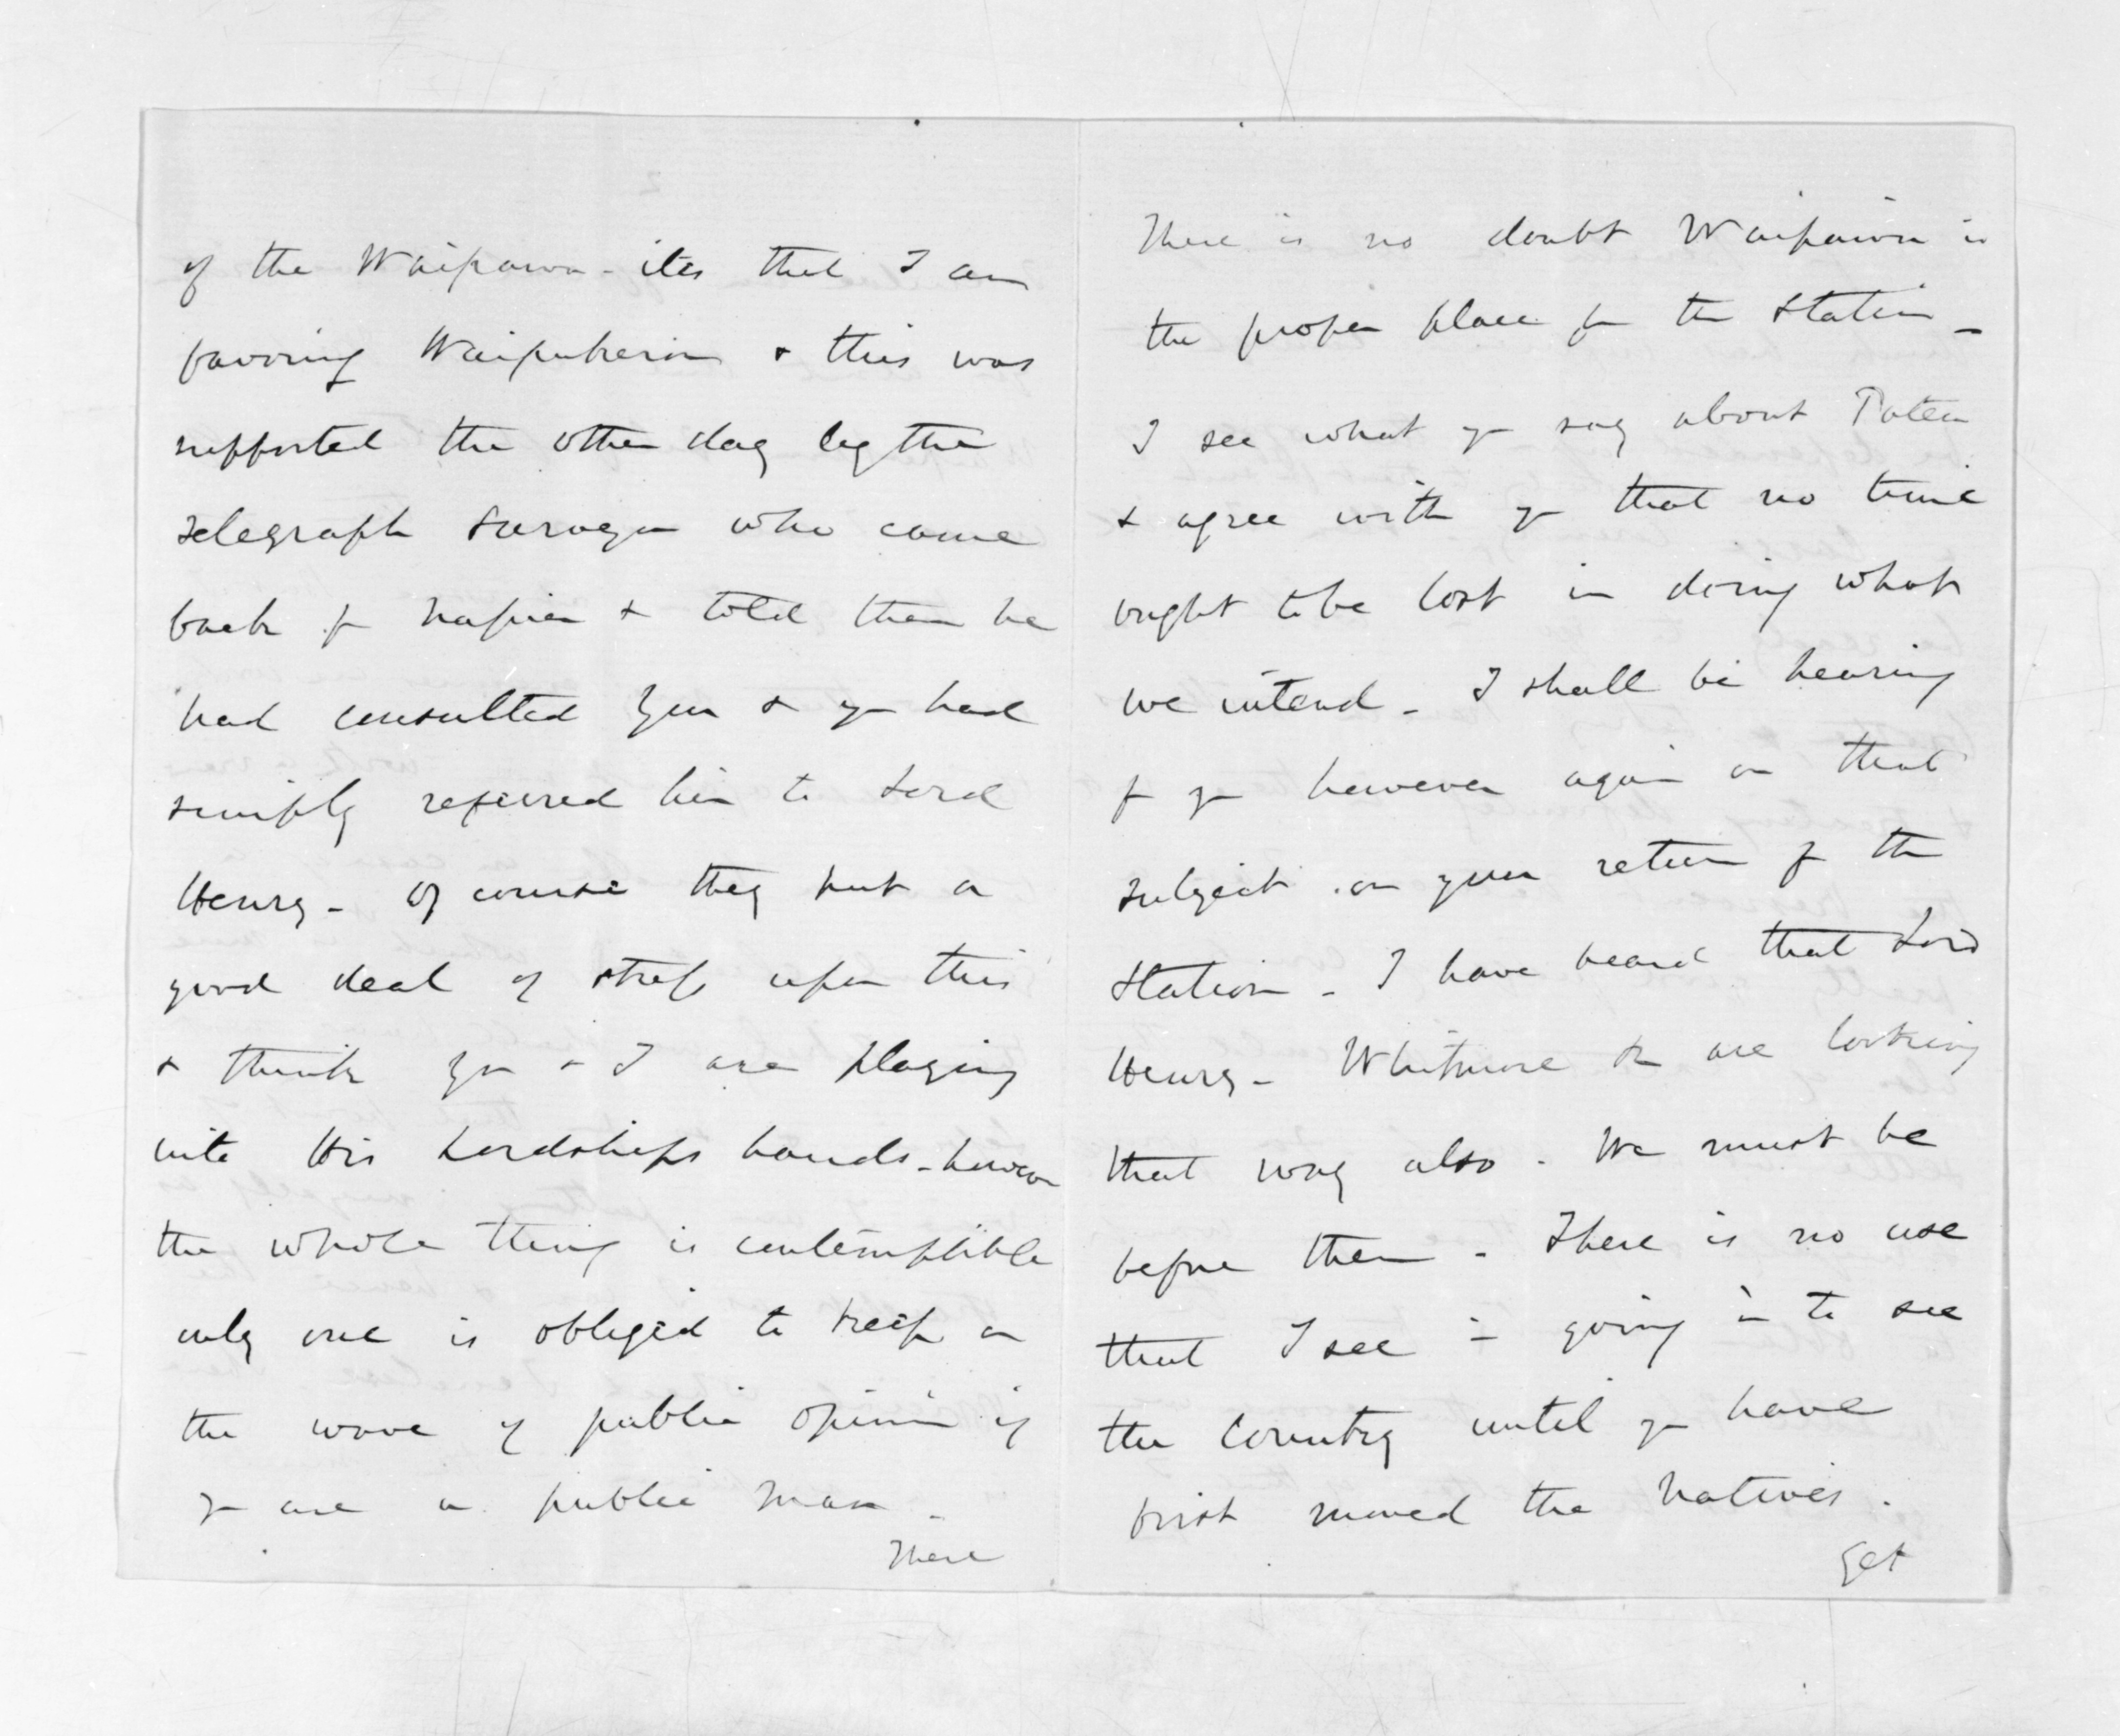 2
of the Waipawa-ites that I am
favoring Waipukurau & this was
supported the other day by the
Telegraph Surveyor who came
back fr Napier & told them he
had consulted you & you had
simply referred him to Lord
Henry - Of course they put a
good deal of stress upon this
& think you & I are playing
into His Lordships hands - however
the whole thing is contemptible
only one is obliged to keep on
the wave of public opinion if
you are a public man -
There
There is no doubt Waipawa is
the proper place for the Station -
I see what you say about Patea
& agree with you that no time
ought to be lost in doing what
we intend - I shall be hearing
fr you however again on that
subject on your return fr the
Station - I have heard that Lord
Henry - Whitmore & are looking
that way also - We must be
before them - There is no use
that I see in going in to see
the Country until you have
first moved the Natives.
Get